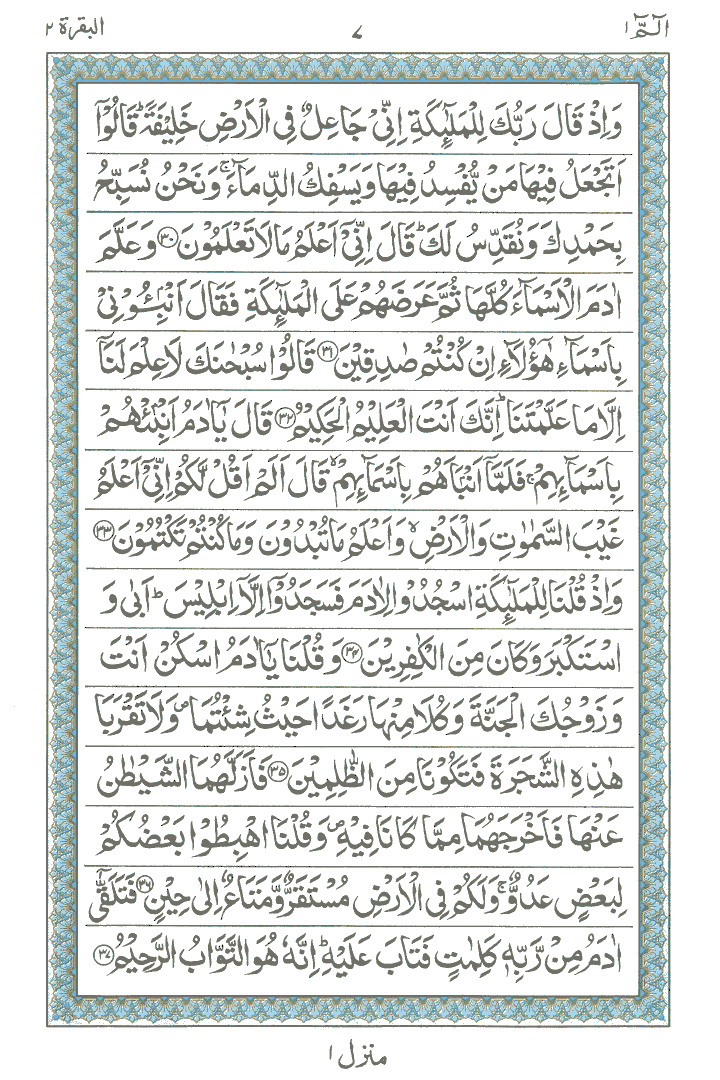 الٓمّٓ ١ ٧ البقرة ٢
وَاِذْ قَالَ رَبُّكَ لِلْمَلٰٓئِكَةِ اِنِّیْ جَاعِلٌ فِی الْاَرْضِ خَلِیْفَةً ؕ قَالُوْۤا
اَتَجْعَلُ فِیْهَا مَنْ یُّفْسِدُ فِیْهَا وَیَسْفِكُ الدِّمَآءَ ۚ وَنَحْنُ نُسَبِّحُ
بِحَمْدِكَ وَنُقَدِّسُ لَكَ ؕ قَالَ اِنِّیْۤ اَعْلَمُ مَا لَا تَعْلَمُوْنَ ﴿۳۰﴾ وَعَلَّمَ
اٰدَمَ الْاَسْمَآءَ كُلَّهَا ثُمَّ عَرَضَهُمْ عَلَی الْمَلٰٓئِكَةِ فَقَالَ اَنْۢبِـُٔوْنِیْ
بِاَسْمَآءِ هٰۤؤُلَآءِ اِنْ كُنْتُمْ صٰدِقِیْنَ ﴿۳۱﴾ قَالُوْا سُبْحٰنَكَ لَا عِلْمَ لَنَاۤ
اِلَّا مَا عَلَّمْتَنَا ؕ اِنَّكَ اَنْتَ الْعَلِیْمُ الْحَكِیْمُ ﴿۳۲﴾ قَالَ یٰۤاٰدَمُ اَنْۢبِئْهُمْ
بِاَسْمَآىِٕهِمْ ۚ فَلَمَّاۤ اَنْۢبَاَهُمْ بِاَسْمَآىِٕهِمْ ۙ قَالَ اَلَمْ اَقُلْ لَّكُمْ اِنِّیْۤ اَعْلَمُ
غَیْبَ السَّمٰوٰتِ وَالْاَرْضِ ۙ وَاَعْلَمُ مَا تُبْدُوْنَ وَمَا كُنْتُمْ تَكْتُمُوْنَ ﴿۳۳﴾
وَاِذْ قُلْنَا لِلْمَلٰٓئِكَةِ اسْجُدُوْا لِاٰدَمَ فَسَجَدُوْۤا اِلَّاۤ اِبْلِیْسَ ؕ اَبٰی وَ
اسْتَكْبَرَ وَكَانَ مِنَ الْكٰفِرِیْنَ ﴿۳۴﴾ وَقُلْنَا یٰۤاٰدَمُ اسْكُنْ اَنْتَ
وَزَوْجُكَ الْجَنَّةَ وَكُلَا مِنْهَا رَغَدًا حَیْثُ شِئْتُمَا ۪ وَلَا تَقْرَبَا
هٰذِهِ الشَّجَرَةَ فَتَكُوْنَا مِنَ الظّٰلِمِیْنَ ﴿۳۵﴾ فَاَزَلَّهُمَا الشَّیْطٰنُ
عَنْهَا فَاَخْرَجَهُمَا مِمَّا كَانَا فِیْهِ ۪ وَقُلْنَا اهْبِطُوْا بَعْضُكُمْ
لِبَعْضٍ عَدُوٌّ ۚ وَلَكُمْ فِی الْاَرْضِ مُسْتَقَرٌّ وَّمَتَاعٌ اِلٰی حِیْنٍ ﴿۳۶﴾ فَتَلَقّٰۤی
اٰدَمُ مِنْ رَّبِّهٖ كَلِمٰتٍ فَتَابَ عَلَیْهِ ؕ اِنَّهٗ هُوَ التَّوَّابُ الرَّحِیْمُ ﴿۳۷﴾
منزل ١